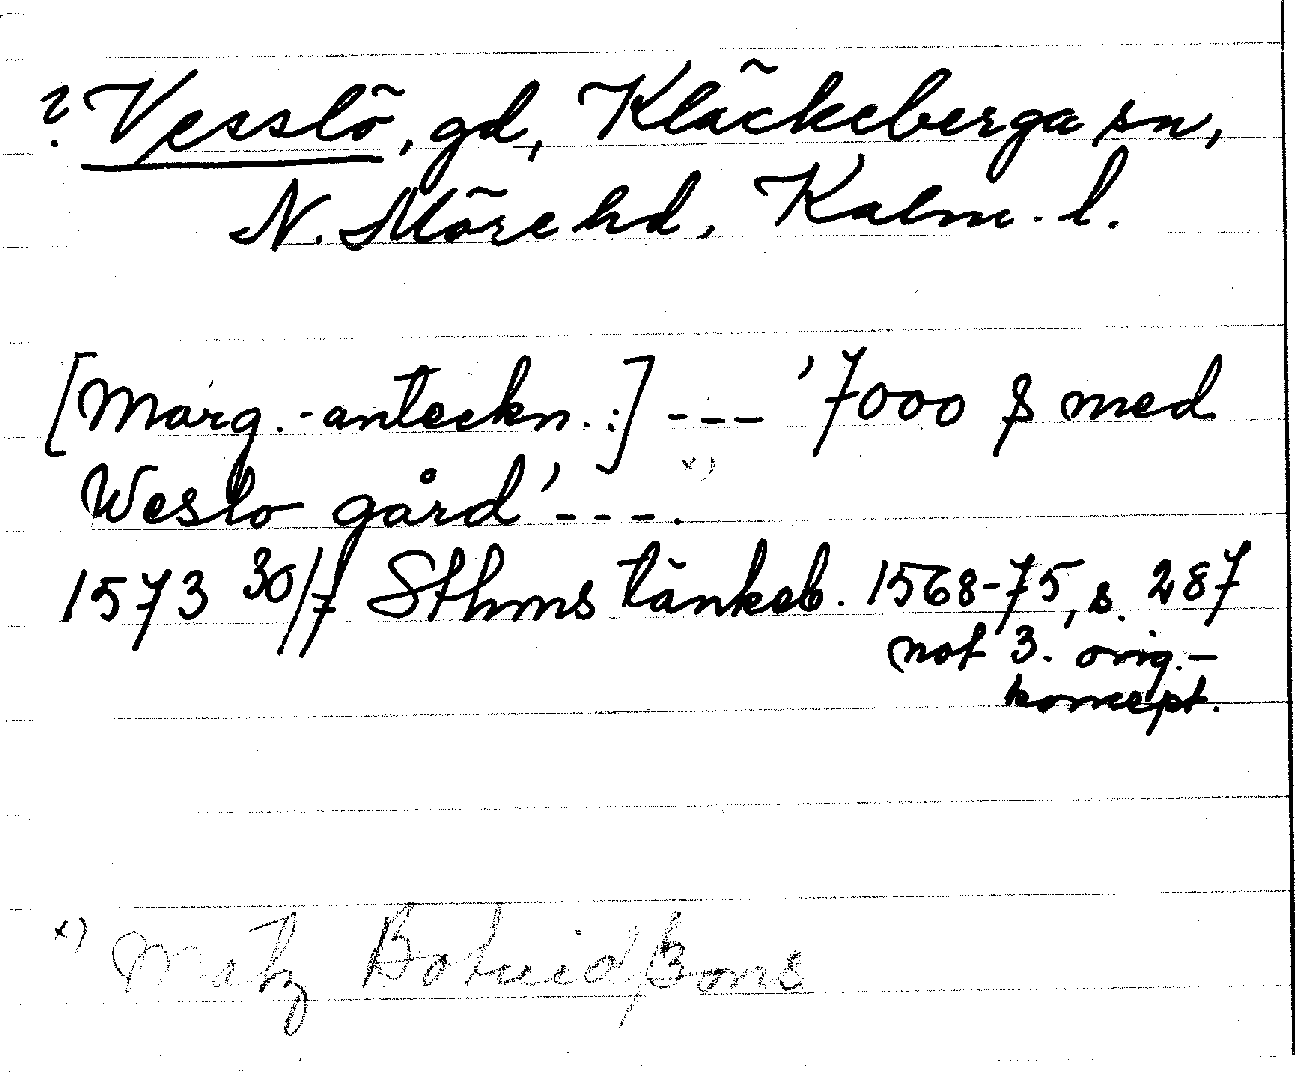 ? Vesslö, gd, Kläckeberga sn,
N. Möre hd, Kalm. l.
[Marg.-anteckn.:] --- '7000 ꝭ med
Weslo gård' ---. x)
1573 30/7 Sthms tänkeb. 1568-75, s. 287
not 3. orig.-
koncept.
x) Matz Botuidßons